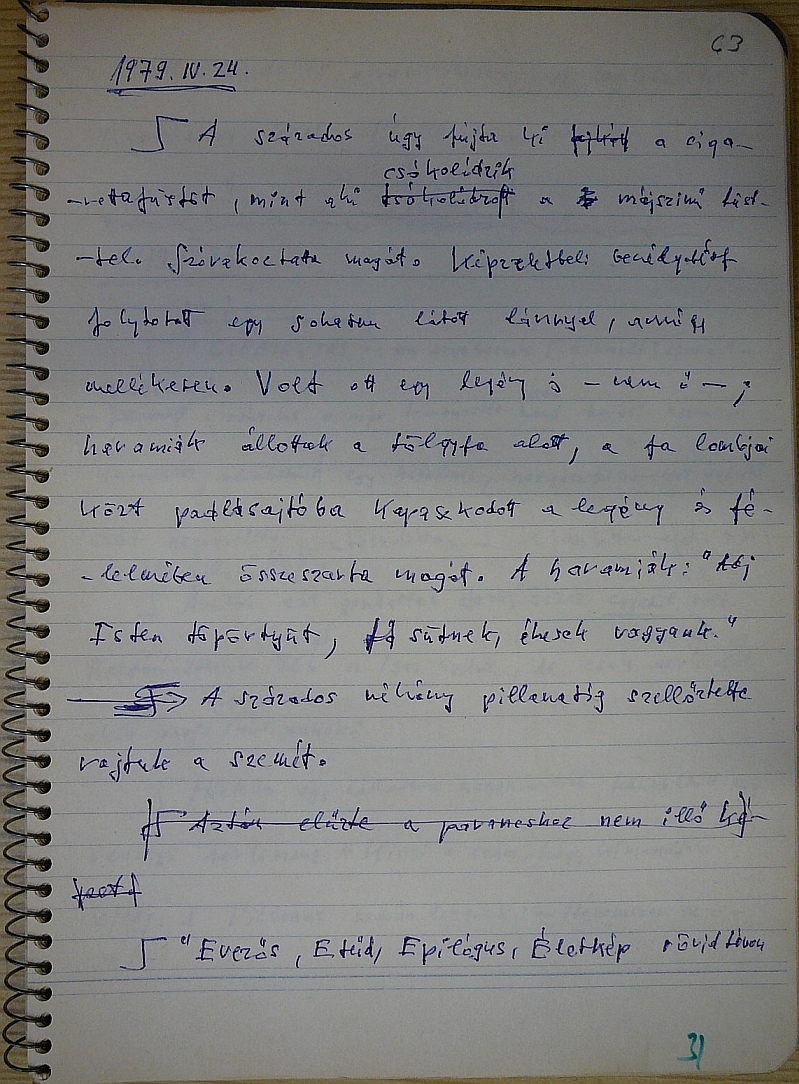 63
1979. IV. 24.
A százados úgy fújta ki a ciga-
csókolódzik
-rettafüstöt, mint aki csókolódzott a májszínű füst-
-tel. Szórakoztatta magát. Képzeletbeli
folytatott egy sohasem látott lánnyal, amúgy
mellékesen. Volt ott egy legény is – nem ő – ;
haramiák állottak a tölgyfa alatt, a fa lombjai
közt padlásajtóba kapaszkodott a legény és fé-
-lelmében összeszarta magát. A haramiák: "Adj
Isten töpörtyűt, sütnek, éhesek vagyunk."
A százados néhány pillanatig szellőztette
rajtuk a szemét.
Aztán elűzte a parancshoz nem illő ké-
pet
"Evezős, Etűd, Epilógus, Életkép rövidtávon
31